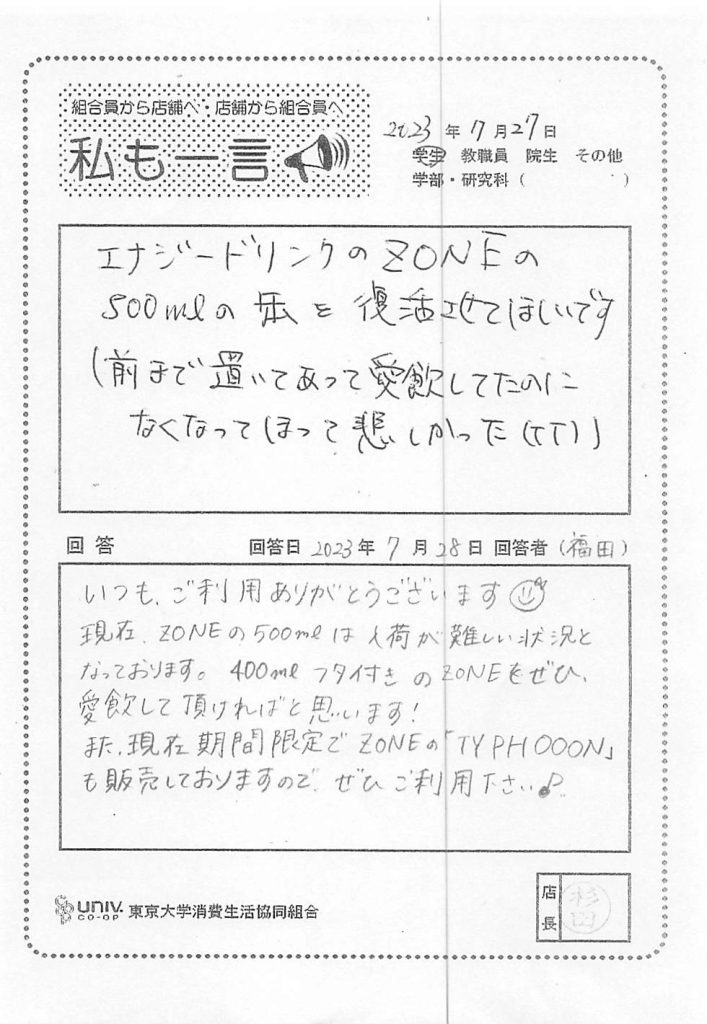 組合員から店舗へ・店舗から組合員へ
私も一言
2023年7月27日
学生 教職員 院生 その他
学部・研究科( )
エナジードリンクのZONEの
500mlの缶を復活させてほしいです
(前まで置いてあって愛飲してたのに
なくなってしまって悲しかった(TT))
回答 回答日 2023年7月28日 回答者(福田)
いつも、ご利用ありがとうございます
現在、ZONEの500mlは入荷が難しい状況と
なっております。400mlフタ付きのZONEをぜひ、
愛飲して頂ければと思います!
また、現在期間限定でZONEの「TYPHOOON」
も販売しておりますので、ぜひご利用下さい♪
UNIV. CO-OP 東京大学消費生活協同組合
店長 杉田